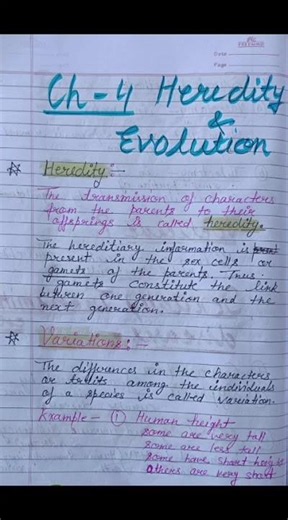 Date
Page
Ch-4 Heredity
&
Evolution
Heredity :-
The transmission of characters
from the parents to their
offsprings is called heredity.
The hereditiary information is
present in the sex cells or
gamets of the parents. Thus
gamets constitute the link
between one generation and the
next generation.
Variations :-
The differences in the characters
or traits among the individuals
of a species is called variation.
Example - ① Human height
some are very tall
some are less tall
some have short heig
others are very short